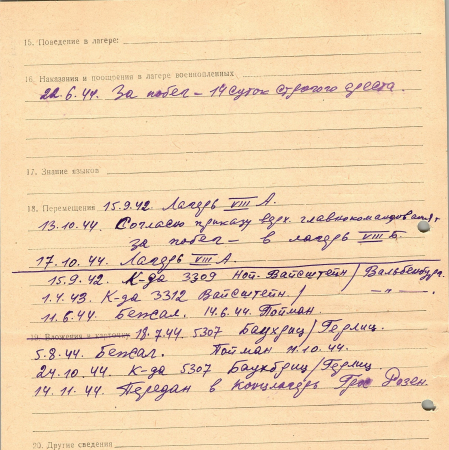 15. Поведение в лагере:
16. Наказания и поощрения в лагере военнопленных
22.6.44. За побег – 14 суток строгого ареста.
17. Знание языков
18. Перемещения 15.9.42. Лагерь VIII А.
13.10.44. Согласно приказу верх. главнокомандов
за побег – в лагерь VIII Б.
17.10.44. Лагерь VIII А.
15.9.42. К-да 3309 Вайсштейн / Вальденбург.
1.4.43. К-да 3312 Вайсштейн / – " –
11.6.44. Бежал. 14.6.44. Пойман.
19. Вложения в карточку 18.7.44. 5307 Баухриц / Герлиц.
5.8.44. Бежал. Пойман 10.44.
24.10.44. К-да 5307 Герлиц.
14.11.44. Передан в Концлагерь Розен.
20. Другие сведения